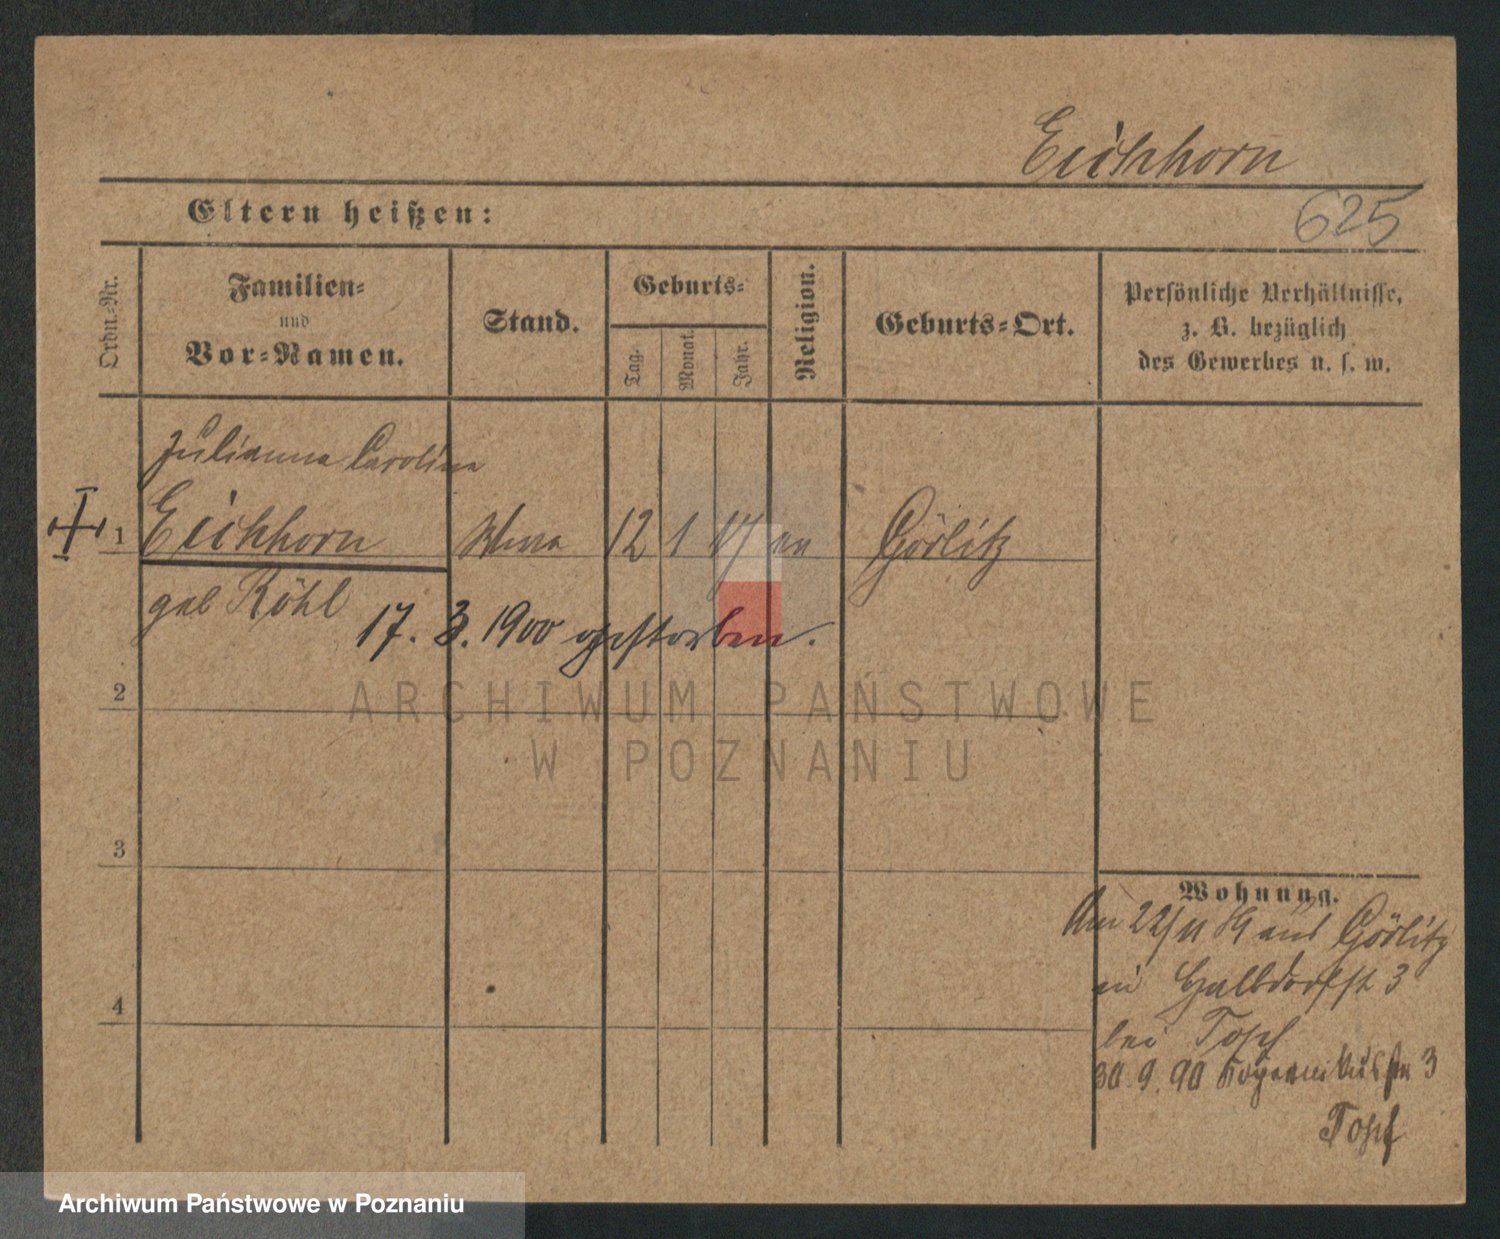 Eichhorn
Eltern heißen:
625
Ordn.-Nr.
Familien-
und
Vor-Namen.
Stand.
Geburts-
Tag.
Monat.
Jahr.
Religion.
Geburts-Ort.
Persönliche Verhältnisse,
z. B. bezüglich
des Gewerbes u. s. w.
Julianna Carolina
1 Eichhorn 12 1 17 Görlitz
geb Röhl
17. 3. 1900 gestorben.
2
ARCHIWUM PAŃSTWOWE
W POZNANIU
3
Wohnung.
Am 22/11 aus Görlitz
in Halbdorfst 3
4
bei Topf
30. 9. 90 Kopernikusstr 3
Topf
Archiwum Państwowe w Poznaniu